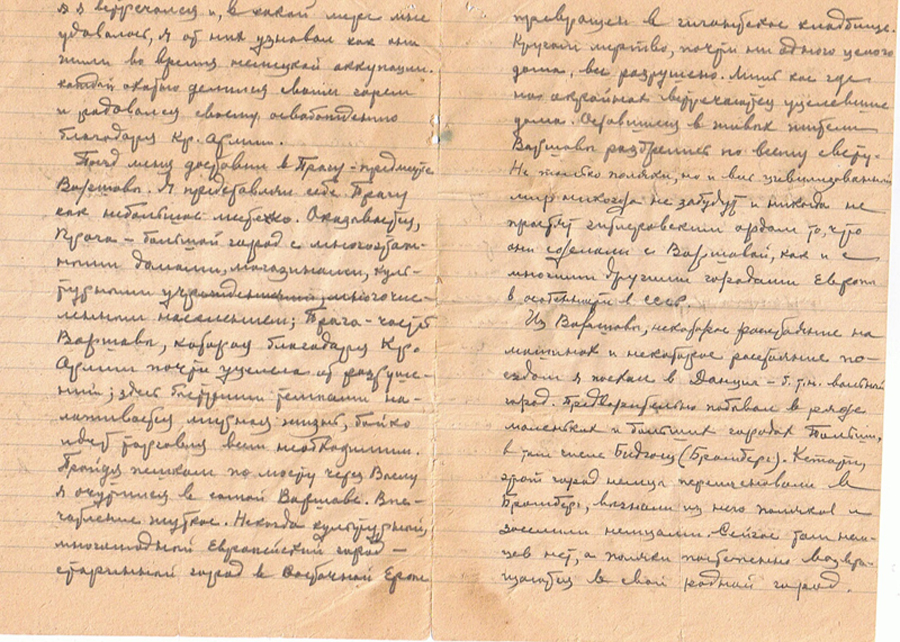 я я встречался и, в какой мере мне
удавалось, я от них узнавал как они
жили во время немецкой аккупации.
каждый охотно делился своим горем
и радовался своему освобождению
благодаря Кр. Армии.
Поезд меня доставил в Прагу - предместье
Варшавы. Я представлял себе Прагу
как небольшое местечко. Оказывается,
Прага - большой город с многоэтаж-
ными домами, магазинами, куль-
турными учреждениями и многочис-
ленным населением; Прага - часть
Варшавы, которая благодаря Кр.
Армии почти уцелела от разруше-
ний; здесь быстрыми темпами на-
лаживается мирная жизнь, бойко
идет торговля всем необходимым.
Пройдя пешком по мосту через Вислу
я очутился в самой Варшаве. Впе-
чатление жуткое. Некогда культурный,
многолюдный Европейский город -
старинный город в Восточной Европе
превращен в гигантское кладбище.
Кругом мертво, почти ни одного целого
дома, все разрушено. Лишь кое где
на окраинах встречаются уцелевшие
дома. Оставшиеся в живых жители
Варшавы разбрелись по всему свету.
Не только поляки, но и весь цивилизованный
мир никогда не забудут и никогда не
простят гитлеровским ордам то, что
они сделали с Варшавой, как и с
многими другими городами Европы
в особенности в СССР.
Из Варшавы, некоторое расстояние на
машинах и некоторое расстояние по-
ездом я поехал в Данциг - б.т.н. вольный
город. Предварительно побывал в ряде
маленьких и больших городах Польши,
в том числе Бидгощ (Бромберг). Кстати,
этот город немцы переименовали в
Бромберг, выгнали из него поляков и
заселили немцами. Сейчас там нем-
цев нет, а поляки постепенно возвра-
щаются в свой родной город.